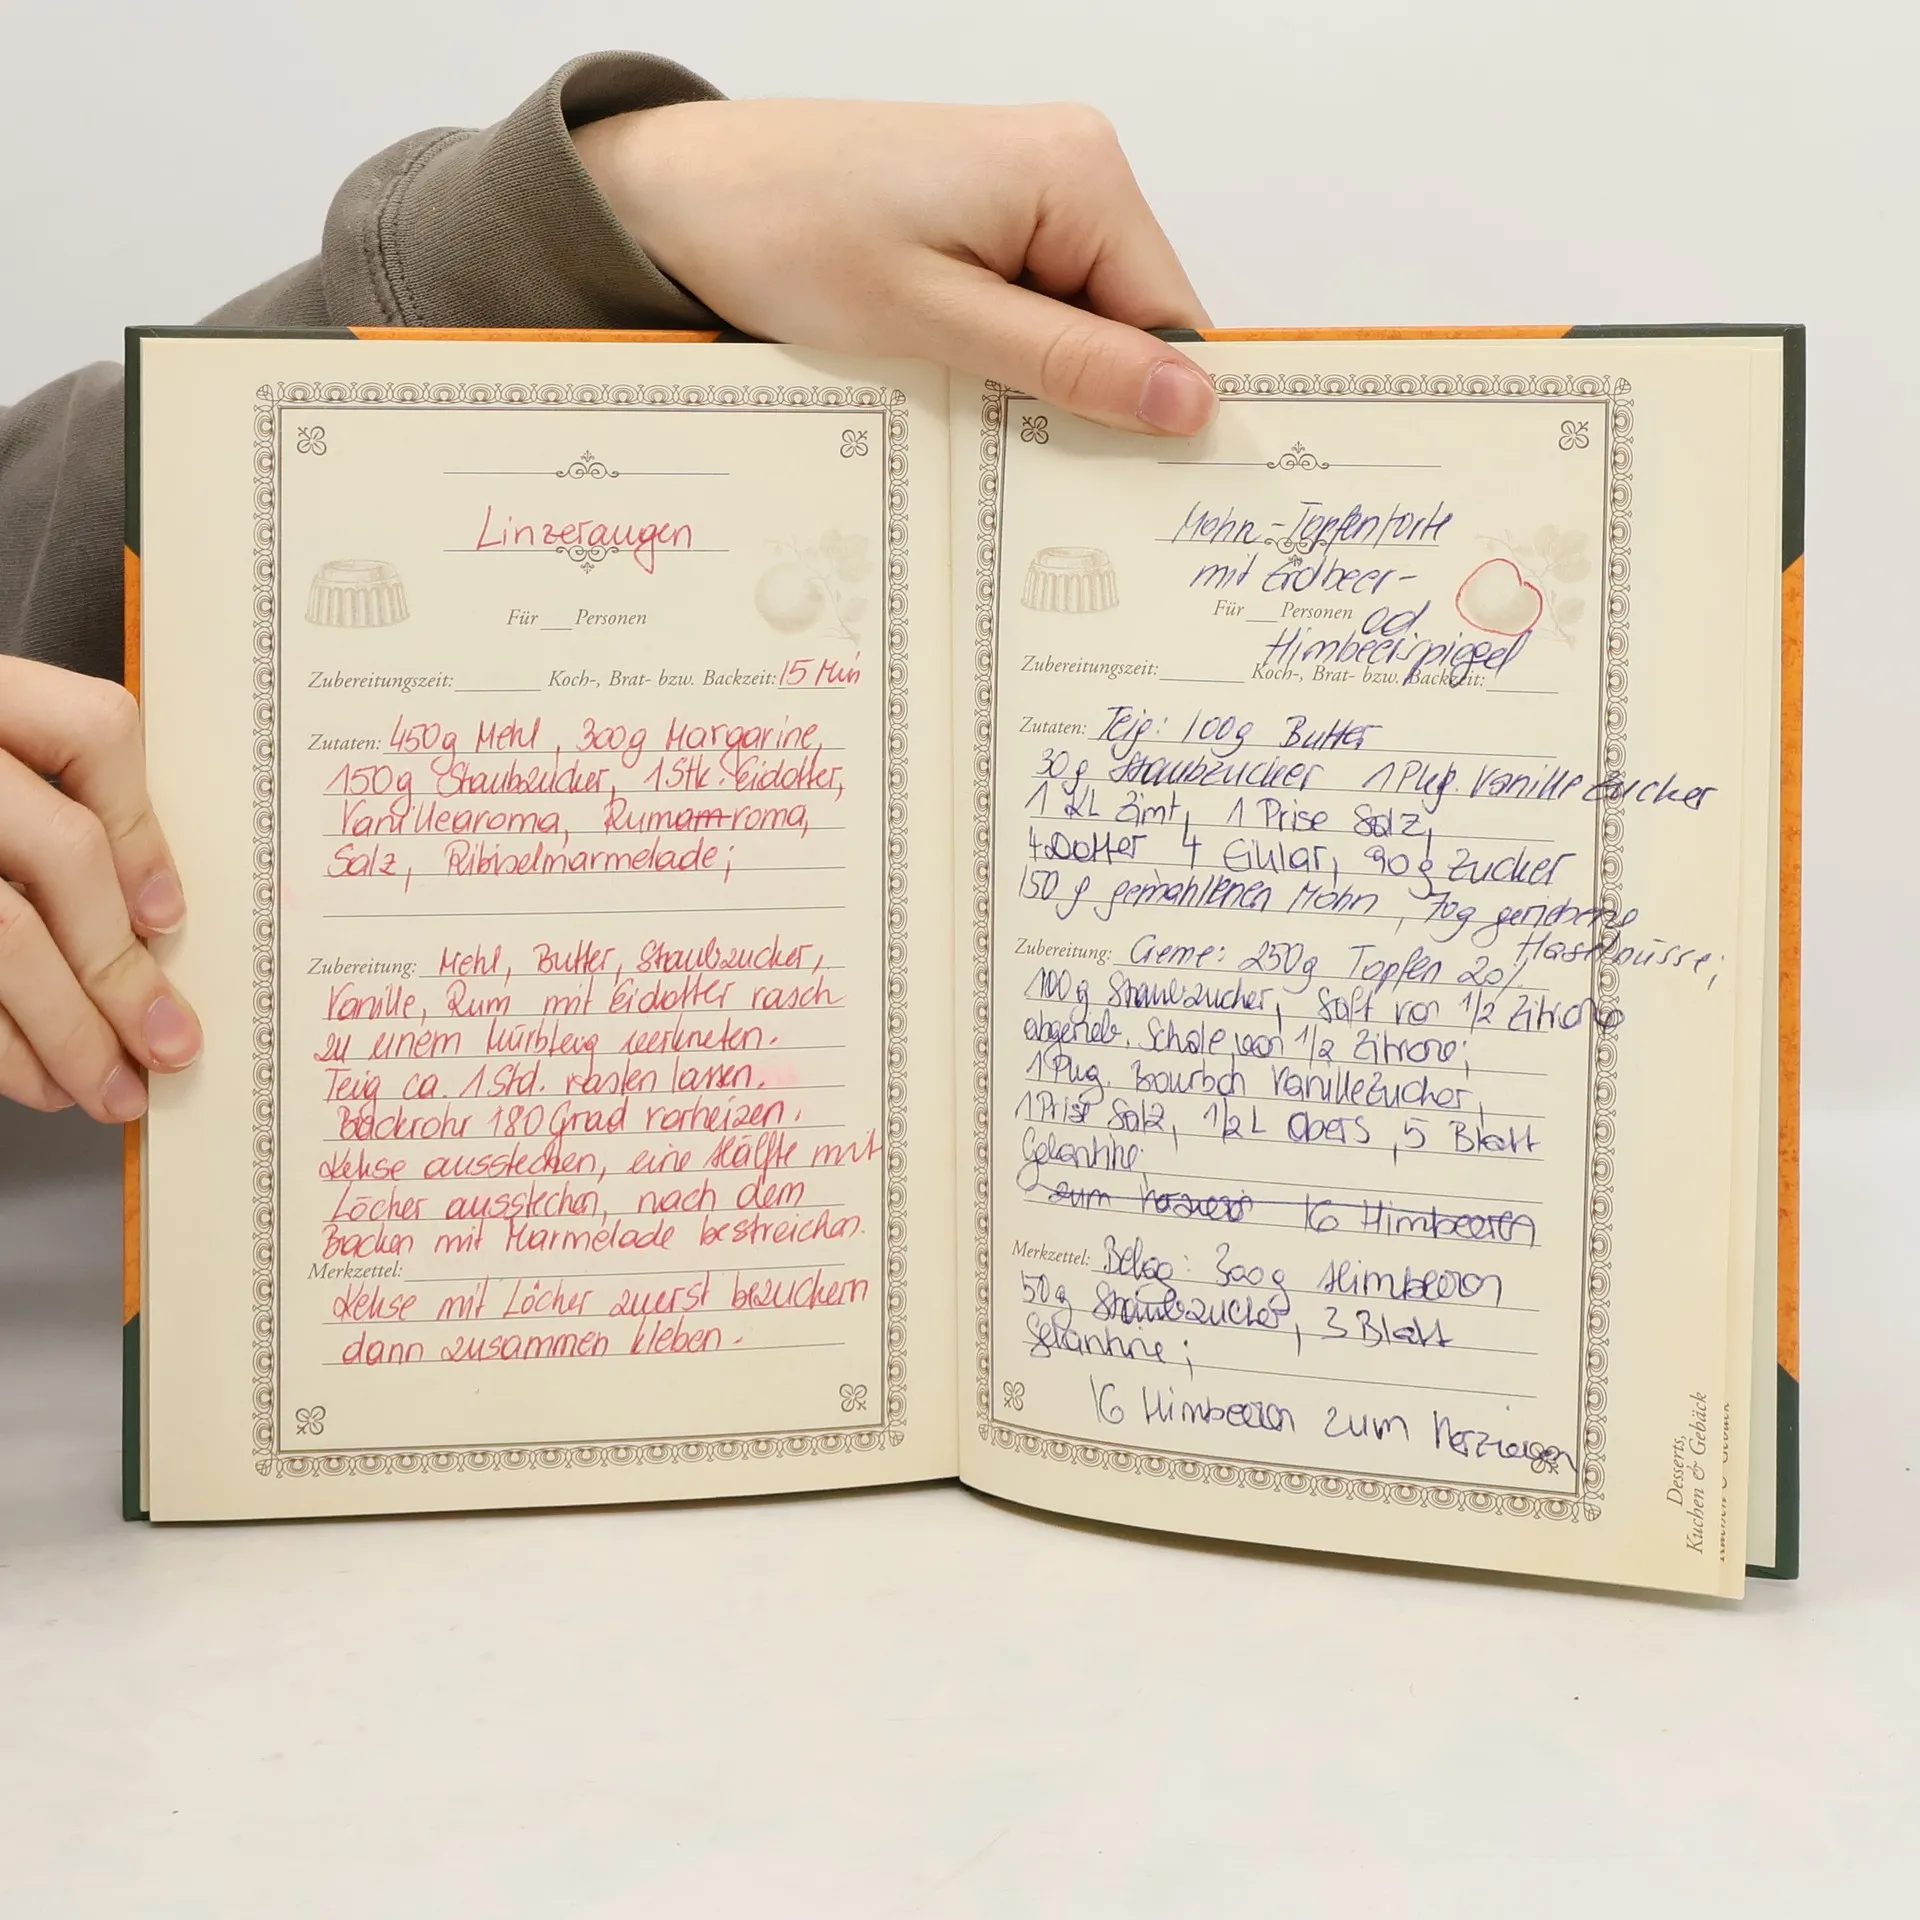 Linzeraugen
Für ___ Personen
Zubereitungszeit: ________ Koch-, Brat- bzw. Backzeit: 15 Min
Zutaten: 450g Mehl, 300g Margarine,
150g Staubzucker, 1 Stk. Eidotter,
Vanillearoma, Rumamroma,
Salz, Ribiselmarmelade;
Zubereitung: Mehl, Butter, Staubzucker,
Vanille, Rum mit Eidotter rasch
zu einem Mürbteig verkneten.
Teig ca. 1 Std. rasten lassen.
Backrohr 180 Grad vorheizen.
Kekse ausstechen, eine Hälfte mit
Löcher ausstechen, nach dem
Backen mit Marmelade bestreichen.
Merkzettel:
Kekse mit Löcher zuerst bezuckern
dann zusammen kleben.
Mohn-Topfentorte
mit Erdbeer-
Für ___ Personen od
Himbeerspiegel
Zubereitungszeit: ________ Koch-, Brat- bzw. Backzeit:
Zutaten: Teig: 100g Butter
30g Staubzucker 1 Pkg. Vanillezucker
1 KL Zimt, 1 Prise Salz,
4 Dotter 4 Eiklar, 90g Zucker
150 g gemahlenen Mohn, 70g geriebene
Haselnüsse;
Zubereitung: Creme: 250g Topfen 20%
100g Staubzucker, Saft von 1/2 Zitrone
abgerieb. Schale von 1/2 Zitrone;
1 Pkg. Bourbon Vanillezucker,
1 Prise Salz, 1/2 L Obers, 5 Blatt
Gelantine;
zum Verzieren 16 Himbeeren
Merkzettel: Belag: 300g Himbeeren
50g Staubzucker, 3 Blatt
Gelantine;
16 Himbeeren zum Verzieren
Desserts,
Kuchen & Gebäck